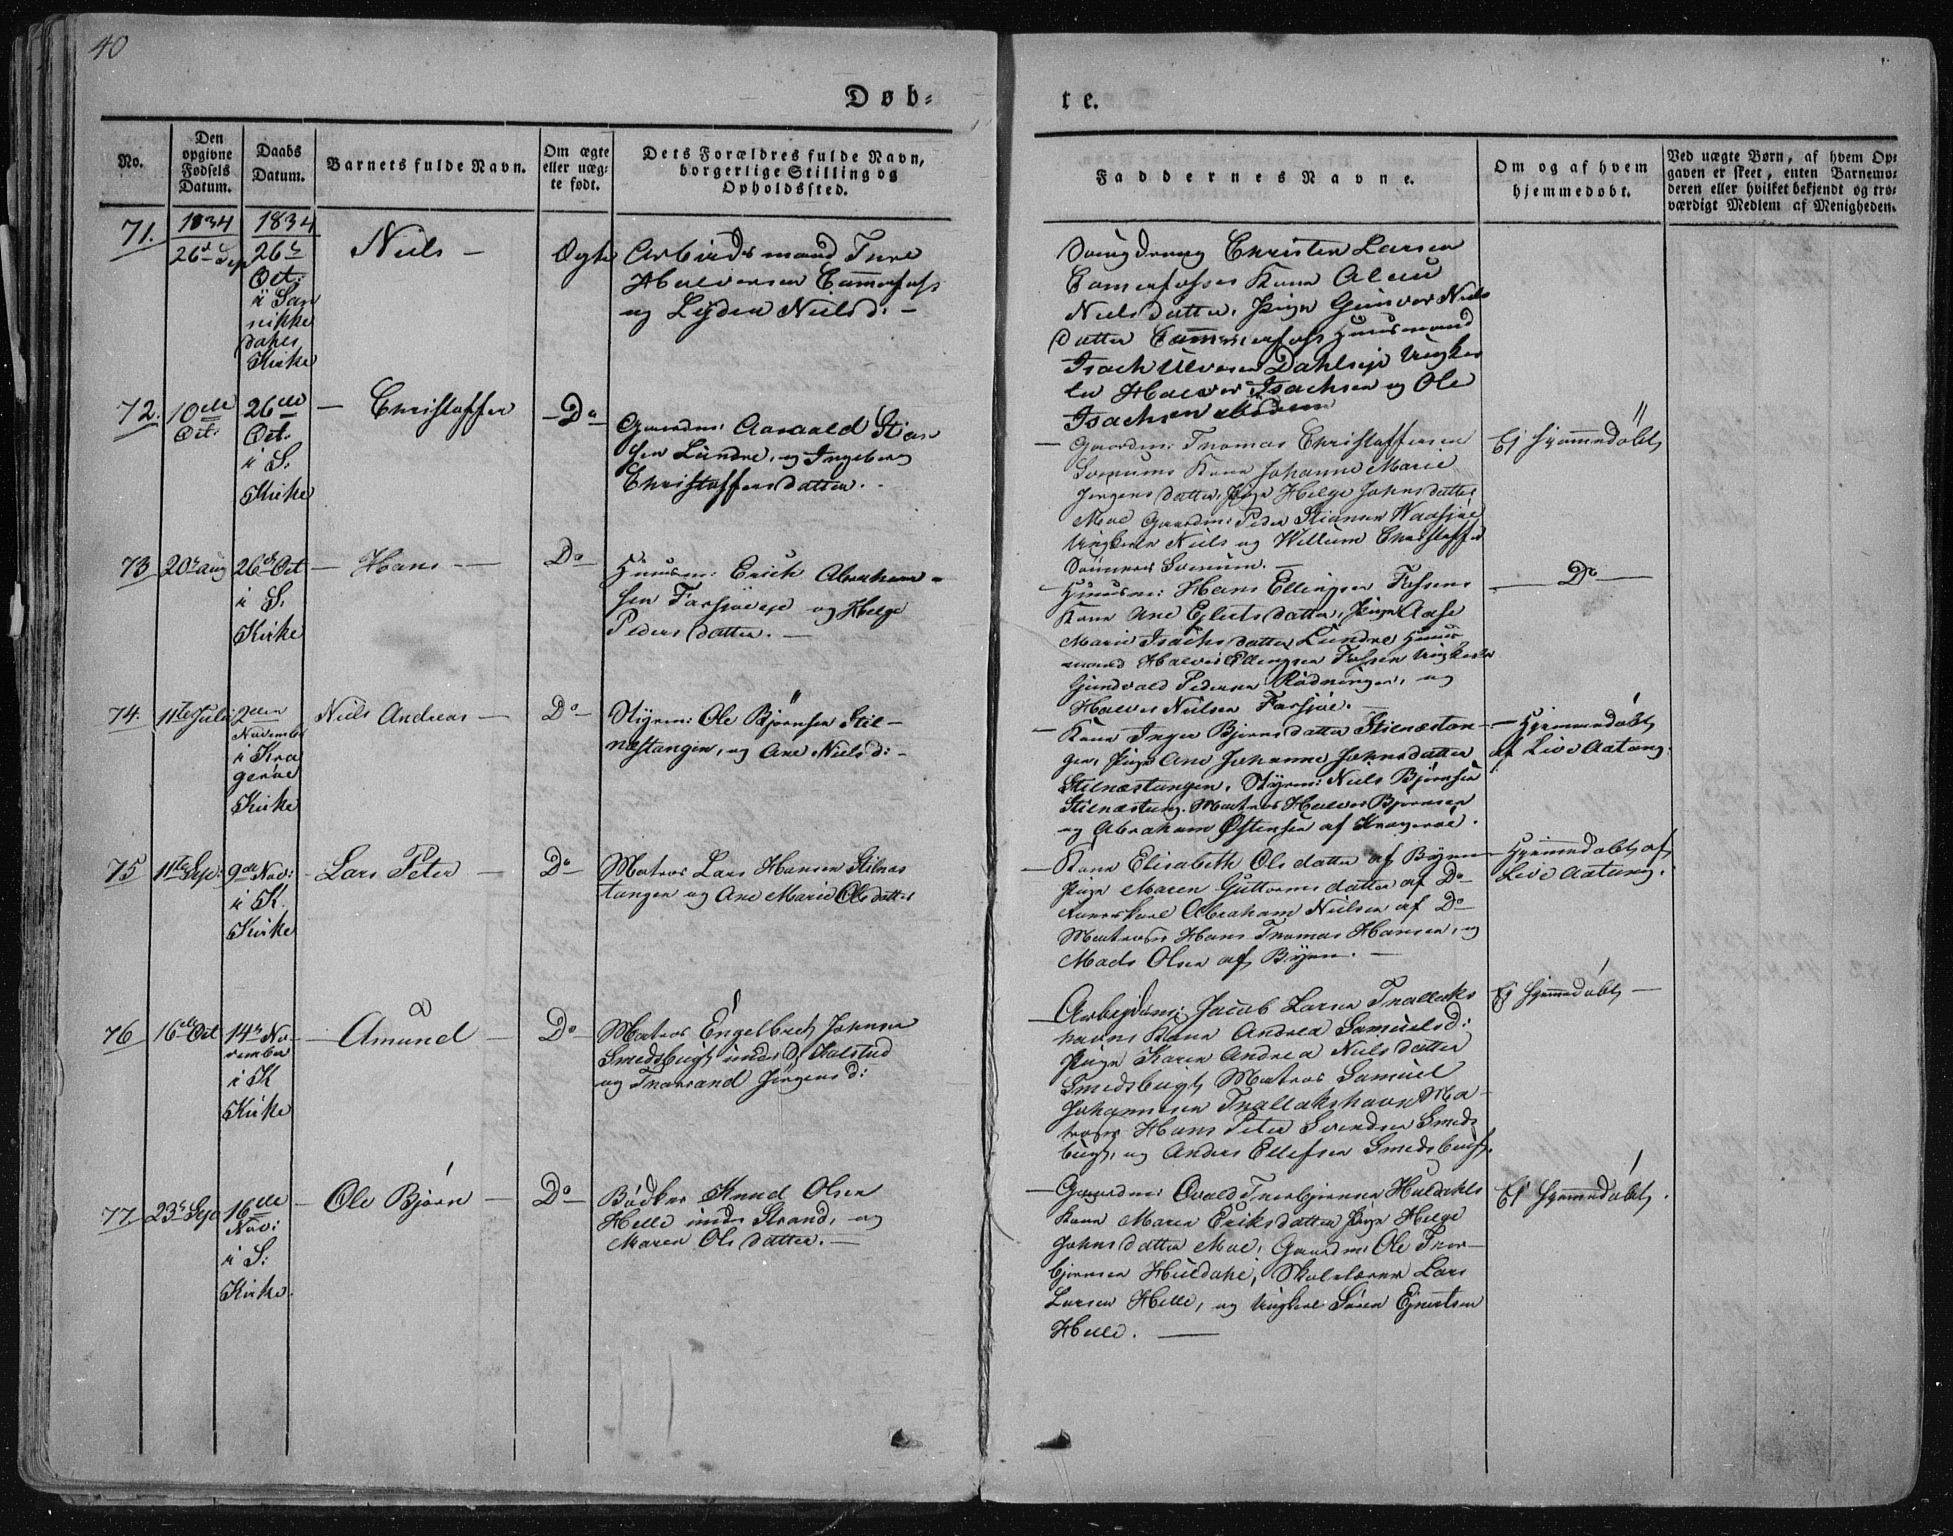 40
Døb-
te.
No.
Den opgivne Fødsels Datum.
Daabs Datum.
Barnets fulde Navn.
Om ægte eller uæg-te født.
Dets Forældres fulde Navn, borgerlige Stilling og Opholdssted.
Faddernes Navne.
Om og af hvem hjemmedøbt.
Ved uægte Børn, af hvem Op-
gaven er skeet, enten Barnemo-
deren eller hvilket bekjendt og tro-
værdigt Medlem af Menigheden.
71.
1834
26de Sep
1834
26de
Oct:
i San
nikke
dahls
Kirke
Niels –
Ægte
Arbeidsmand Ture
Halvorsen Cammerfoss
og Lyden Nielsd: –
Christen Larsen
Kone
Nielsdatter, Pige Gunvor Niels
datter Cammerfoss Huusmand
Isach Dahlseje Ungkar
le Halvor Isachsen og Ole
Isachsen ibidem
72.
10de
Oct:
26de
Oct:
i S:
Kirke
– Christoffer
– Do –
Gaardm: Aanvald Stian
sen Lundre, og Ingeborg
Christoffersdatter.
– Gaardm: Thomas Christoffersen
Kone Johanne Marie
Jørgensdatter, Pige Helge Johnsdatter
Moe Gaardm: Peder Stiansen
Ungkarle Niels og Willum Christoffer
Sønner
Ej hjemmedøbt,
73
20de aug
26de Oct
i S.
Kirke
– Hans –
Do
Huusm: Erich Abraham-
sen Farsjøeje og Helge
Pedersdatter. –
Huusm: Hans Ellingsen
Kone Ane Pige Aase
Marie Isachsdatter Lundre, Huus
mand Halvor Ellingsen Ungkarle
Gundvald Pedersen og
Halvor Nielsen Farsjøe. –
– Do –
74.
11te Juli
2den
November
i Kra
gerøe
Kirke
Niels Andreas –
Do –
Styrm: Ole Bjørnsen Stil-
næstangen, og Ane Nielsd: –
– Kone Inger Bjørnsdatter Stilnæstan-
gen, Pige Ane Johanne Johnsdatter
Stilnæstangen, Styrm: Niels Bjørnsen
Stilnæstang. Matros Halvor Bjørnsen
og Abraham Østensen af Kragerøe.
– Hjemmedøbt
af Live Aatang.
75
11te Sep:
9de Nov:
i K.
Kirke
– Lars Peter –
Do –
Matros Lars Hansen Stilnæs
tangen og Ane Marie Olsdatter
– Kone Elisabeth Olsdatter af Byen
Pige Maren Guttormsdatter af Do
Abraham Nielsen af Do
Matroser Hans Thomas Hansen, og
Mads Olsen af Byen. –
– Hjemmedøbt af
Live Aatang.
76
16de Oct
14de No-
vember
i K
Kirke
– Amund –
Do –
Matros Engelbret Johnsen
Smedsbugt under Kalstad
og Thorrand Jørgensd:
– Arbejdsm: Jacob Larsen Thallaks
havns Kone Andrea Samuelsd:
Pige Karen Andrea Nielsdatter
Smedsbugt, Matros Samuel
Johannesen Thallakshavn Ma-
troser Hans Peter Svendsen Smeds
bugt, og Anders Ellefsen Smedsbugt.
Ej hjemmedøbt –
77
23de Sep
16de
Nov:
i S:
Kirke.
– Ole Bjørn –
Do –
Bødker Knud Olsen
Helle under Strand, og
Maren Olsdatter. –
– Gaardm: Thorbjørnsen Huldahls
Kone Maren Eriksdatter, Pige Helge
Johnsdatter Moe, Gaardm: Ole Thor-
bjørnsen Huldahl, Skolelærer Lars
Larsen Helle, og Ungkarl Søren
Helle. –
Ej hjemmedøbt.